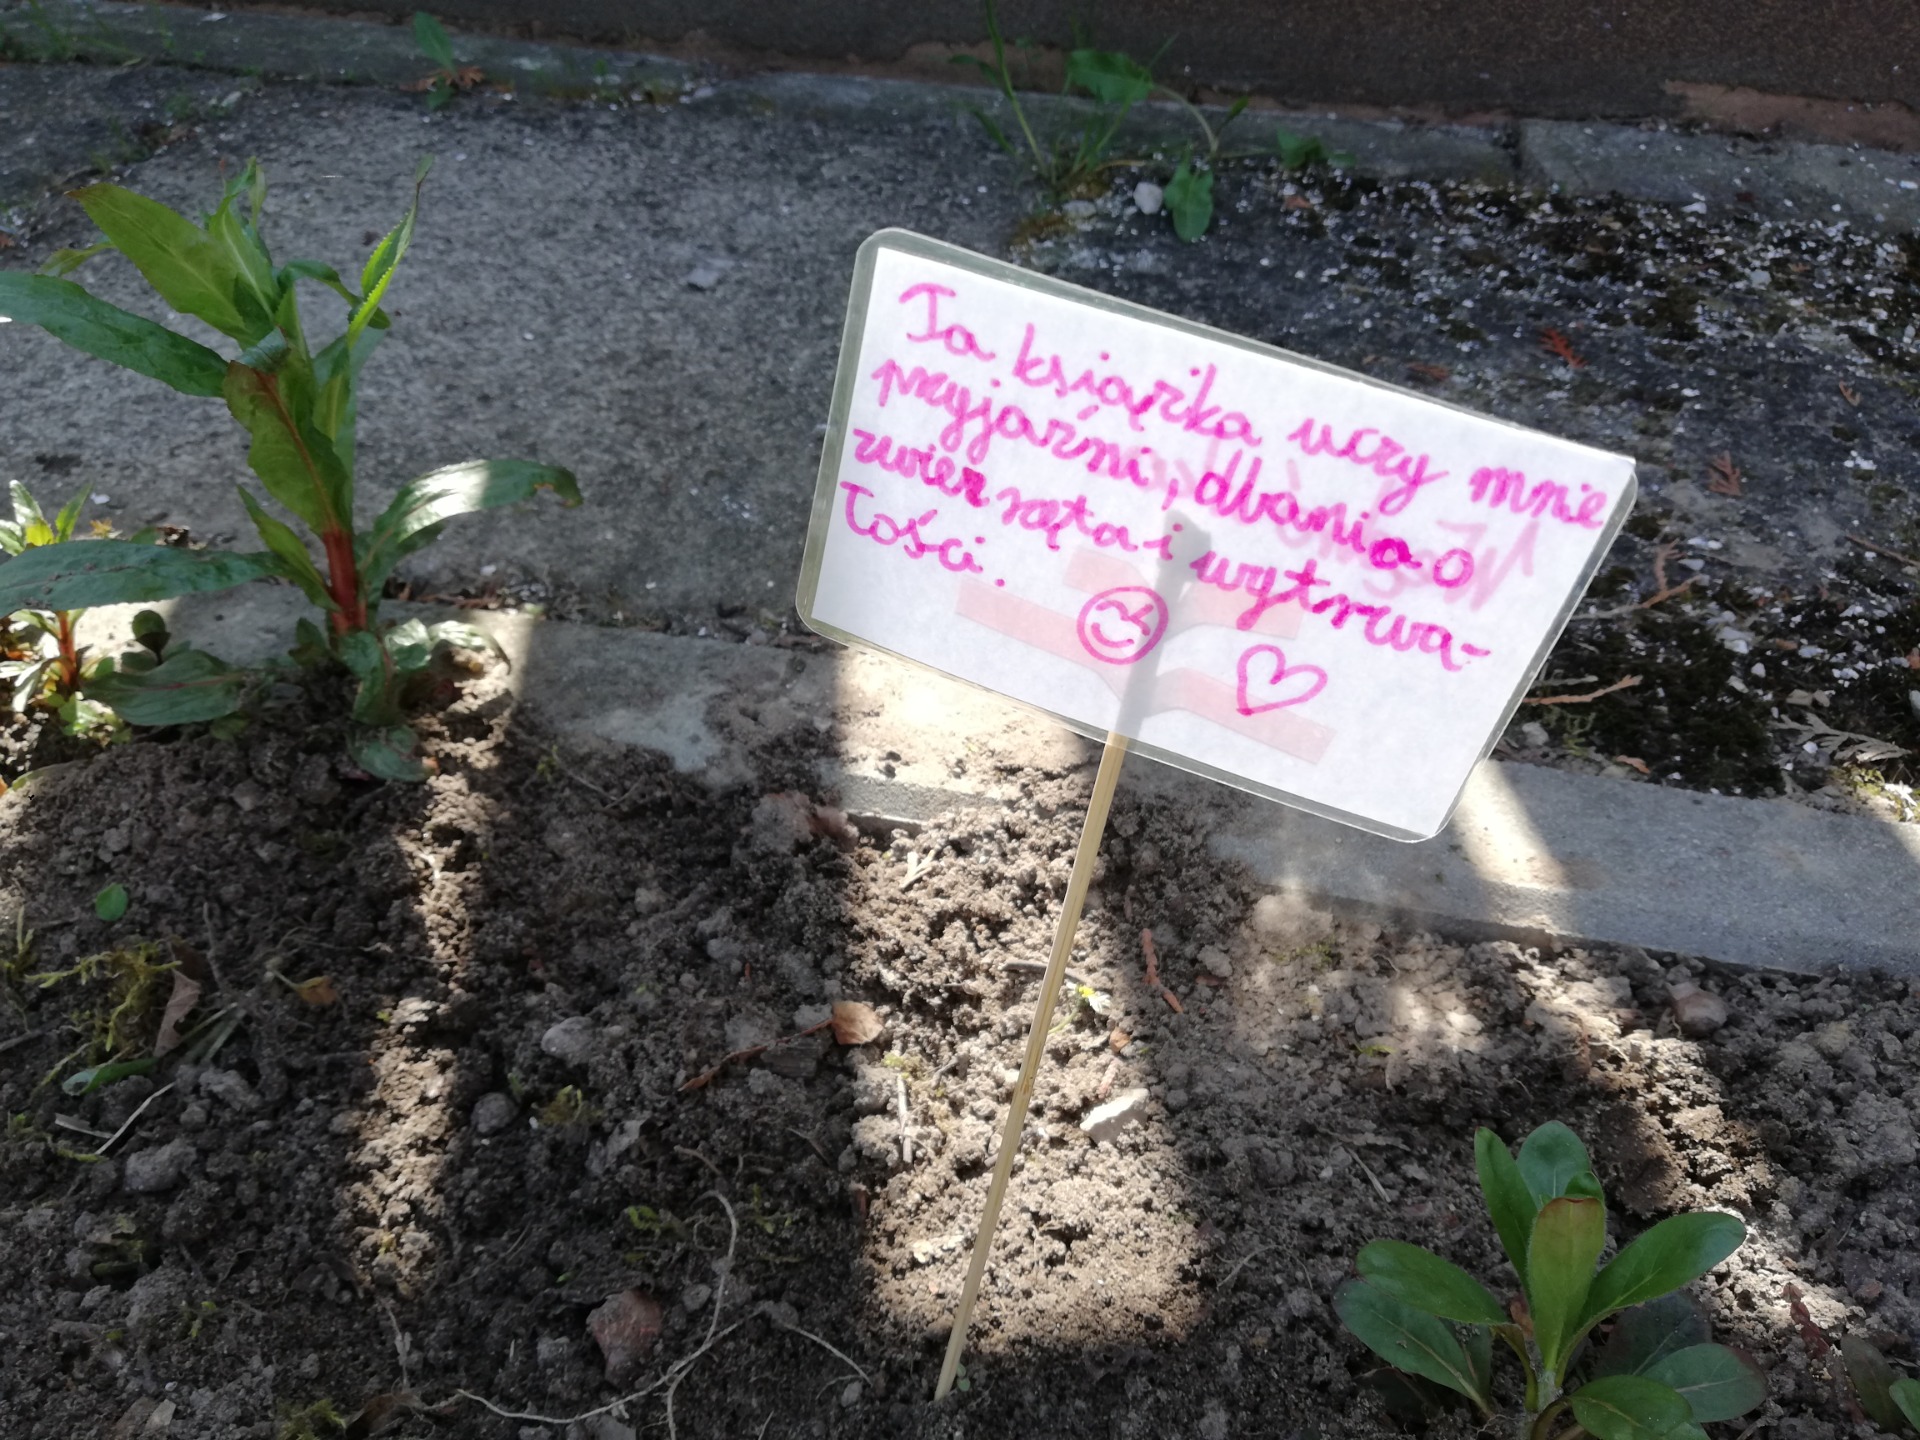 Ta książka uczy mnie
przyjaźni, dbania o
zwierzęta i wytrwa-
łości.